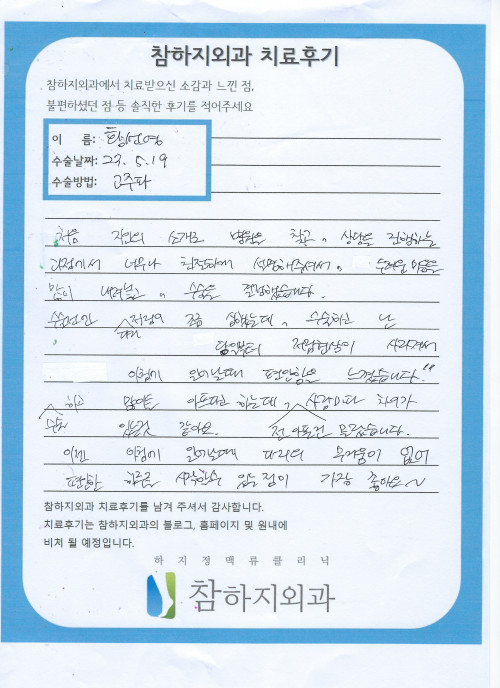 참하지외과 치료후기
참하지외과에서 치료받으신 소감과 느낀 점,
불편하셨던 점 등 솔직한 후기를 적어주세요
이 름:
수술날짜: 23. 5. 19
수술방법: 고주파
처음 지인의 소개로 병원을 찾고, 상담을 진행하는
과정에서 너무나 친절하게 설명해주셔서, 두려운 마음을
많이 내려놓고, 수술을 결정했습니다.
수술전엔 저림이 조금 심했는데, 수술하고 난
당일부터 저림현상이 사라져서
아침에 일어날때 편안함을 느꼈습니다."
수술 하고 많이들 아프다고 하는데, 사람마다 차이가
있을것 같아요. 전 아픈건 몰랐습니다.
이젠 아침에 일어날때 다리의 무거움이 없어
편안한 하루를 시작할수 있는 점이 가장 좋아요~
참하지외과 치료후기를 남겨 주셔서 감사합니다.
치료후기는 참하지외과의 블로그, 홈페이지 및 원내에
비처 될 예정입니다.
하지정맥류클리닉
참하지외과